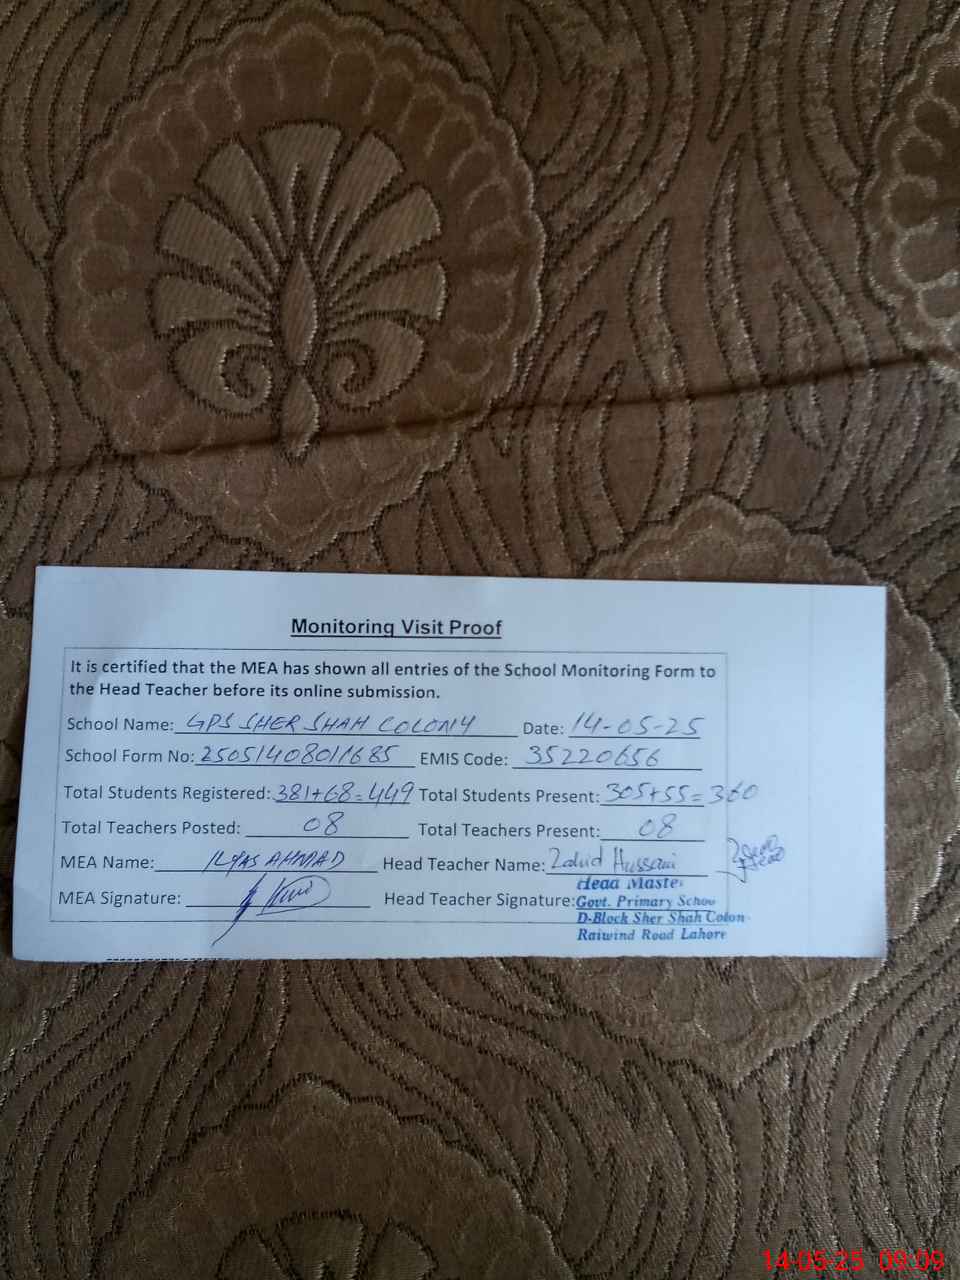 Monitoring Visit Proof
It is certified that the MEA has shown all entries of the School Monitoring Form to
the Head Teacher before its online submission.
School Name: GPS SHER SHAH COLONY Date: 14-05-25
School Form No: 25051408011685 EMIS Code: 35220656
Total Students Registered: 381+68=449 Total Students Present: 305+55=360
Total Teachers Posted: 08 Total Teachers Present: 08
MEA Name: ILYAS AHMAD Head Teacher Name: Zahid Hussain
MEA Signature: Head Teacher Signature:
Head Maste
Govt. Primary Schoo
D-Block Sher Shah Colon
Raiwind Road Lahore
14-05-25 09:09